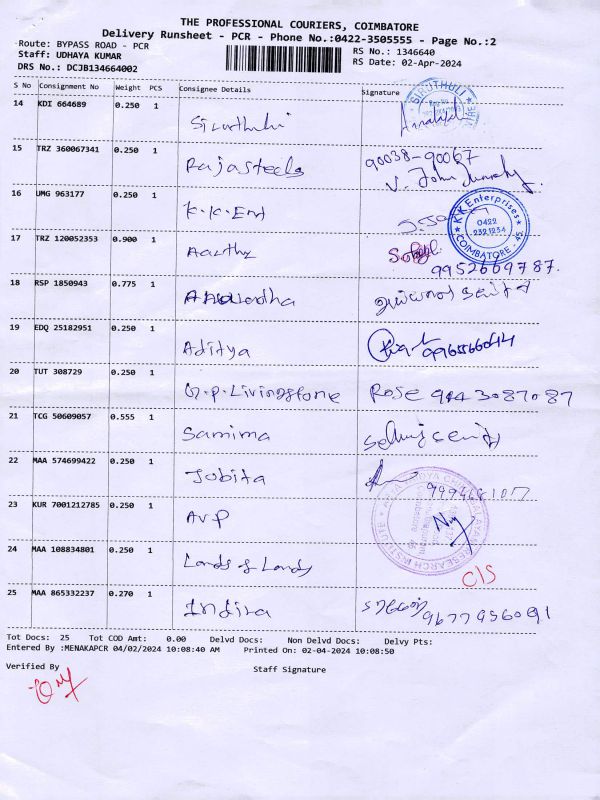 THE PROFESSIONAL COURIERS, COIMBATORE
Delivery Runsheet - PCR - Phone No.:0422-3505555 - Page No.:2
Route: BYPASS ROAD - PCR
Staff: UDHAYA KUMAR
DRS No.: DCJB134664002
RS No.: 1346640
RS Date: 02-Apr-2024
S No Consignment No Weight PCS Consignee Details Signature
14 KDI 664689 0.250 1 Siruthuli
SIRUTHULI
15 TRZ 360067341 0.250 1 Rajasteels 90038-90067
V. John
16 UMG 963177 0.250 1 K.K.Ent
KK Enterprises
0422
2321234
COIMBATORE - 45
17 TRZ 120052353 0.900 1 Aarthy
9952609787.
18 RSP 1850943 0.775 1
19 EDQ 25182951 0.250 1 Aditya 9965566044
20 TUT 308729 0.250 1 G.P.Livingstone Rose 9443087087
21 TCG 50609057 0.555 1 Samima
22 MAA 574699422 0.250 1 Jobita
23 KUR 7001212785 0.250 1 AVP
RESEARCH INSTITUTE
24 MAA 108834801 0.250 1 Lands & Lands C/S
25 MAA 865332237 0.270 1 Indira 9677956091
Tot Docs: 25 Tot COD Amt: 0.00 Delvd Docs: Non Delvd Docs: Delvy Pts:
Entered By :MENAKAPCR 04/02/2024 10:08:40 AM Printed On: 02-04-2024 10:08:50
Verified By
Staff Signature